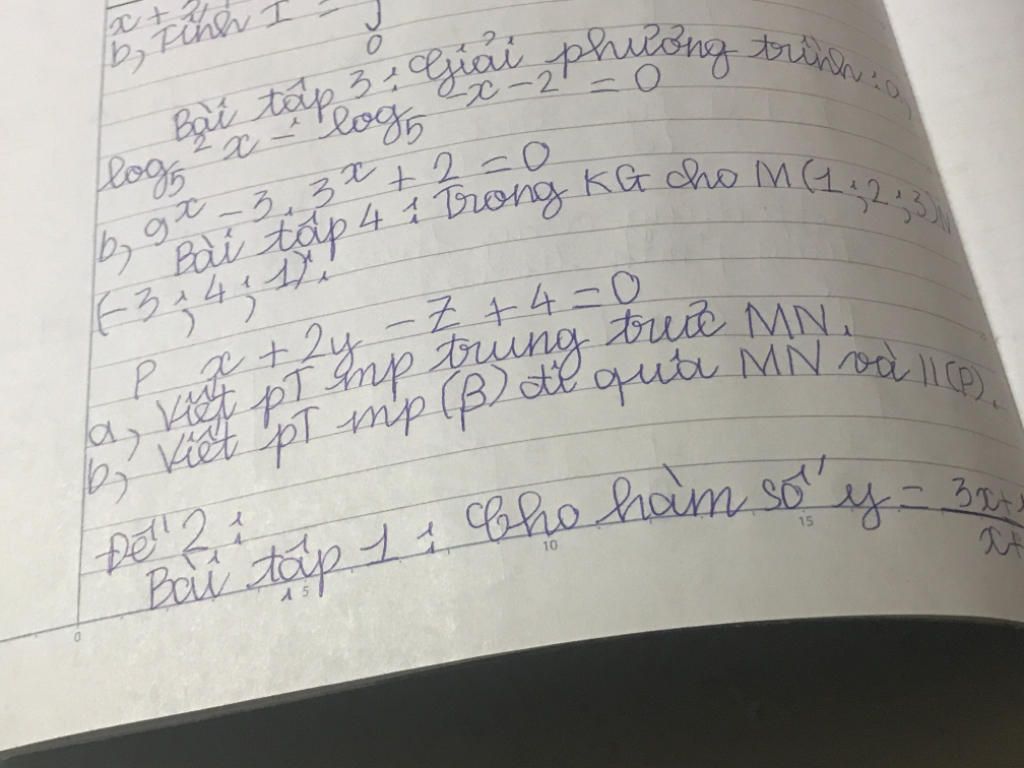 x + 2
b, Tính I = ∫
0
Bài tập 3 : Giải phương trình : a,
log₅² x - log₅ x - 2 = 0
b, 9ˣ - 3. 3ˣ + 2 = 0
Bài tập 4 : Trong KG cho M(1 ; 2 ; 3) N
(-3 ; 4 ; 1).
P x + 2y - z + 4 = 0
a, Viết pT mp trung trực MN.
b, Viết pT mp (β) đi qua MN và // (P).
Đề 2 :
Bài tập 1 : Cho hàm số y = 3x+
x+
0 5 10 15